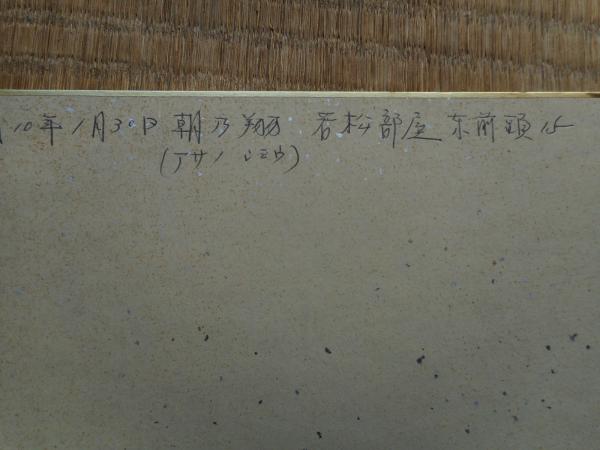 10年1月30日 朝乃翔 若松部屋 东前頭15
(アサノショウ)